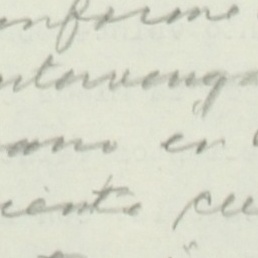 nforme
ntervenga
ano en
iente cu